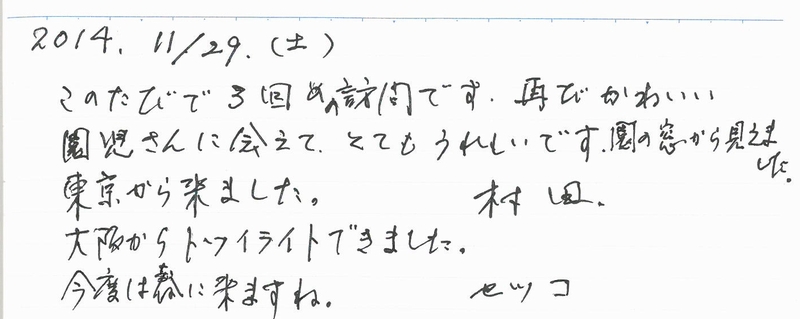 2014. 11/29. (土)
このたびで3回めの訪問です. 再びかわいい
園児さんに会えて. とてもうれしいです. 園の窓から見えました。
東京から来ました。 村田.
大阪からトワイライトできました。
今度は春に来ますね。 セツコ